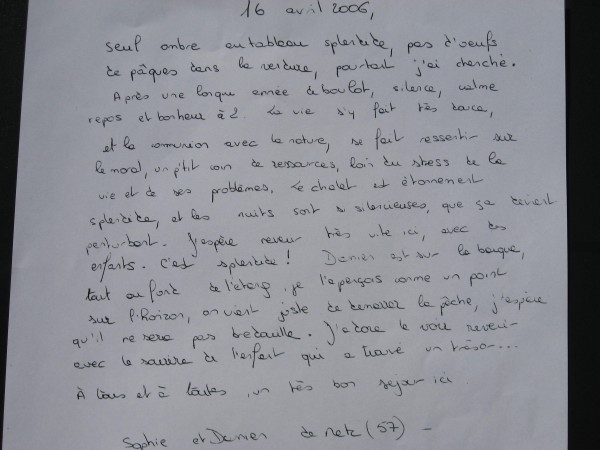 16 avril 2006,
seul ombre au tableau splendide, pas d'oeufs
de pâques dans la verdure, pourtant j'ai cherché.
Après une longue année de boulot, silence, calme
repos et bonheur à 2. La vie s'y fait très douce,
et la communion avec la nature, se fait ressentir sur
le moral, un p'tit coin de ressources, loin du stress de la
vie et de ses problèmes. Le chalet est étonnement
splendide, et les nuits sont si silencieuses, que ça devient
perturbant. J'espère revenir très vite ici, avec des
enfants. C'est splendide ! Damien est sur la barque,
tout au fond de l'étang, je l'aperçois comme un point
sur l'horizon, on vient juste de démarrer la pêche, j'espère
qu'il ne sera pas bredouille. J'adore le voir revenir
avec le sourire de l'enfant qui a trouvé un trésor...
À tous et à toutes, un très bon séjour ici.
Sophie et Damien de Metz (57) -